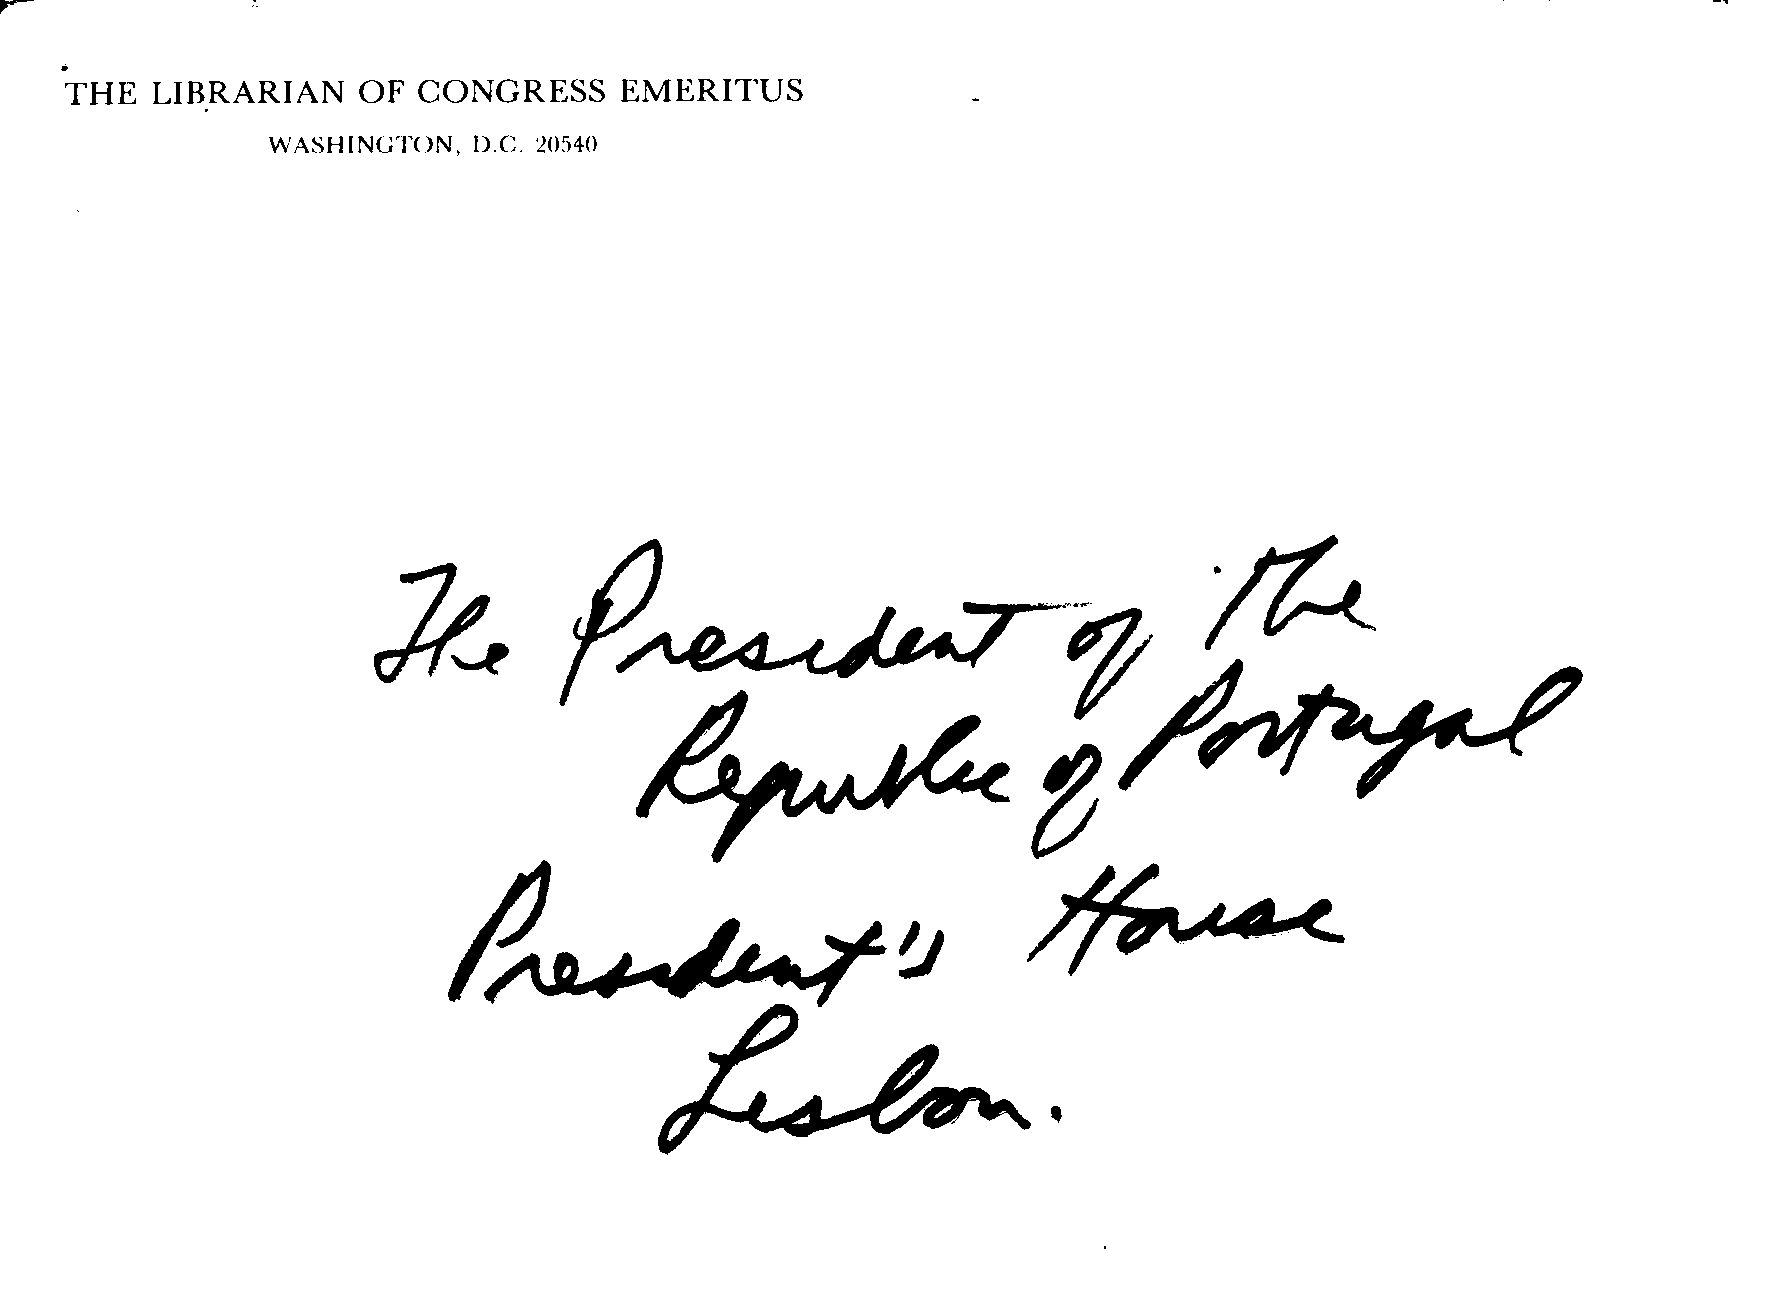 THE LIBRARIAN OF CONGRESS EMERITUS
WASHINGTON, D.C. 20540
The President of the
Republic of Portugal
President's House
Lisbon.